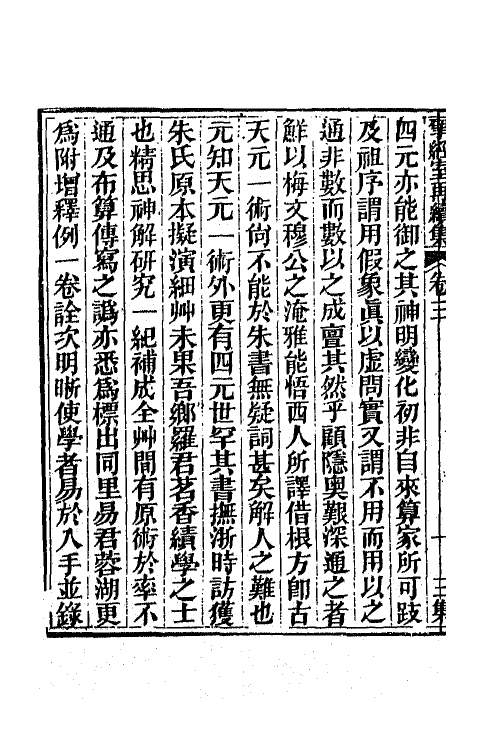 揅經室再續集 卷三 十 三集
四元亦能御之其神明變化初非自來算家所可跂
及祖序謂用假象眞以虛問實又謂不用而用以之
通非數而數以之成亶其然乎顧隱奧艱深通之者
鮮以梅文穆公之淹雅能悟西人所譯借根方卽古
天元一術尙不能於朱書無疑詞甚矣解人之難也
元知天元一術外更有四元世罕其書撫浙時訪獲
朱氏原本擬演細艸未果吾鄉羅君茗香績學之士
也精思神解研究一紀補成全艸間有原術於率不
通及布算傳寫之譌亦悉爲標出同里易君蓉湖更
爲附增釋例一卷詮次明晰使學者易於入手並錄